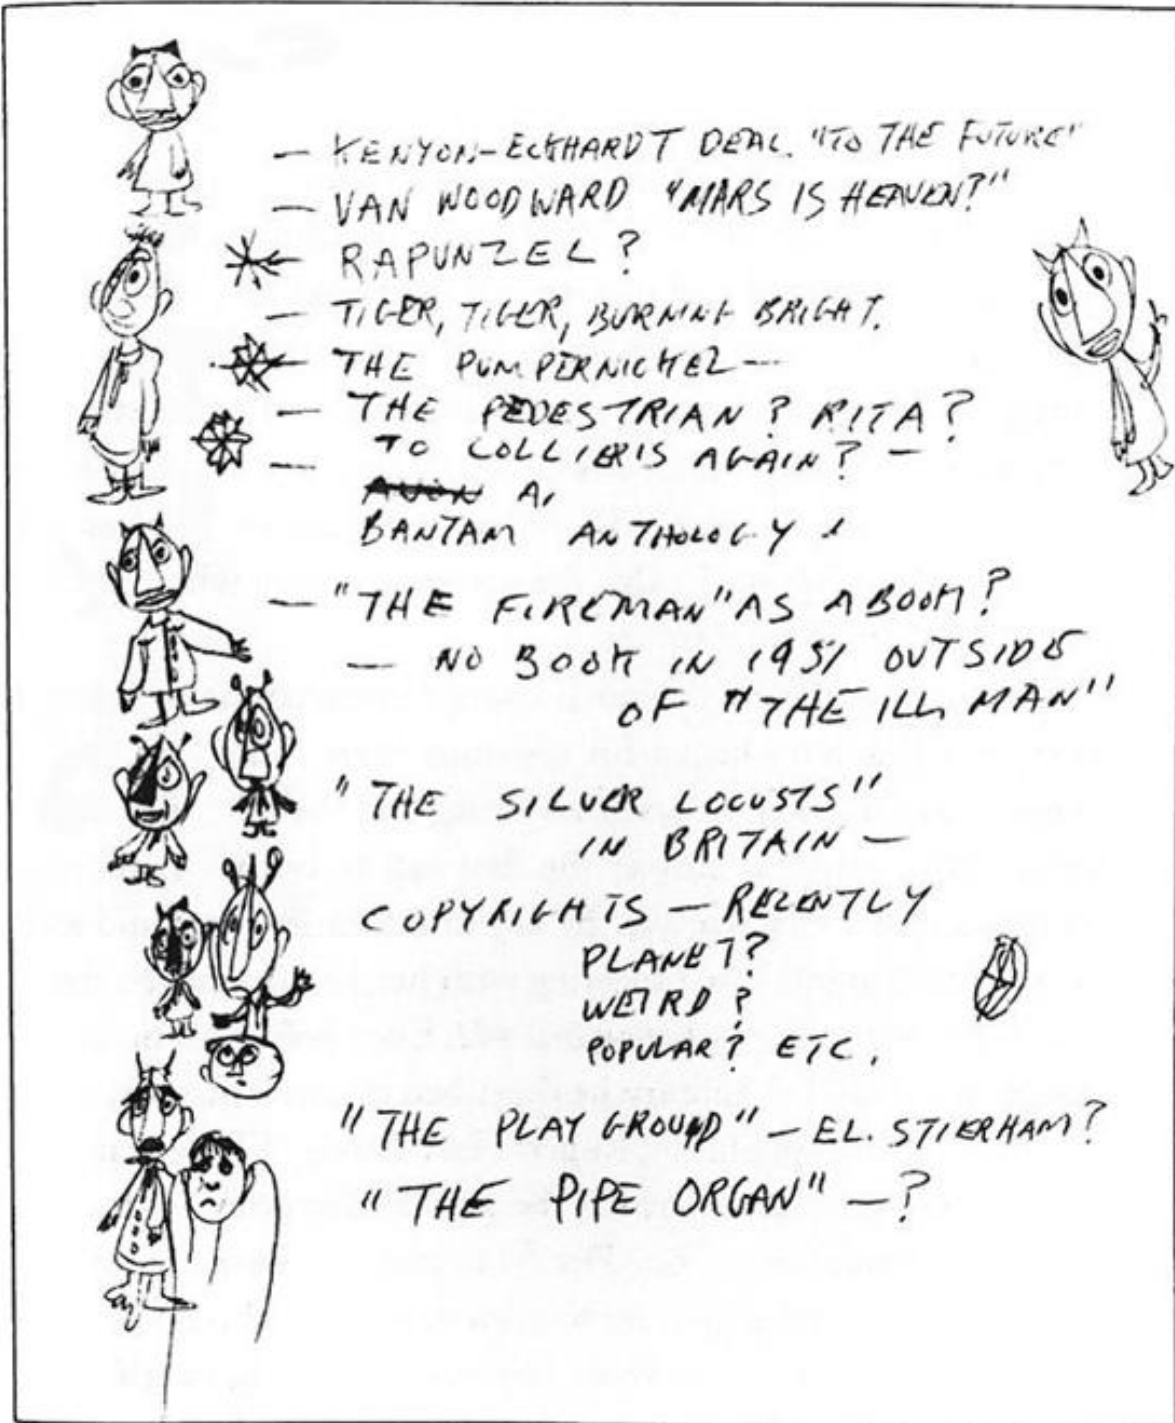 — KENYON-ECKHARDT DEAL. "TO THE FUTURE"
— VAN WOODWARD "MARS IS HEAVEN?"
— RAPUNZEL?
— TIGER, TIGER, BURNING BRIGHT.
— THE PUMPERNICKEL —
— THE PEDESTRIAN? RITA?
— TO COLLIERIS AGAIN? —
A,
BANTAM ANTHOLOGY
— "THE FIREMAN" AS A BOOK?
— NO BOOK IN 1951 OUTSIDE
OF "THE ILL. MAN"
"THE SILVER LOCUSTS"
IN BRITAIN —
COPYRIGHTS — RECENTLY
PLANET?
WEIRD?
POPULAR? ETC.
"THE PLAY GROUND" — EL. STIERHAM?
"THE PIPE ORGAN" — ?